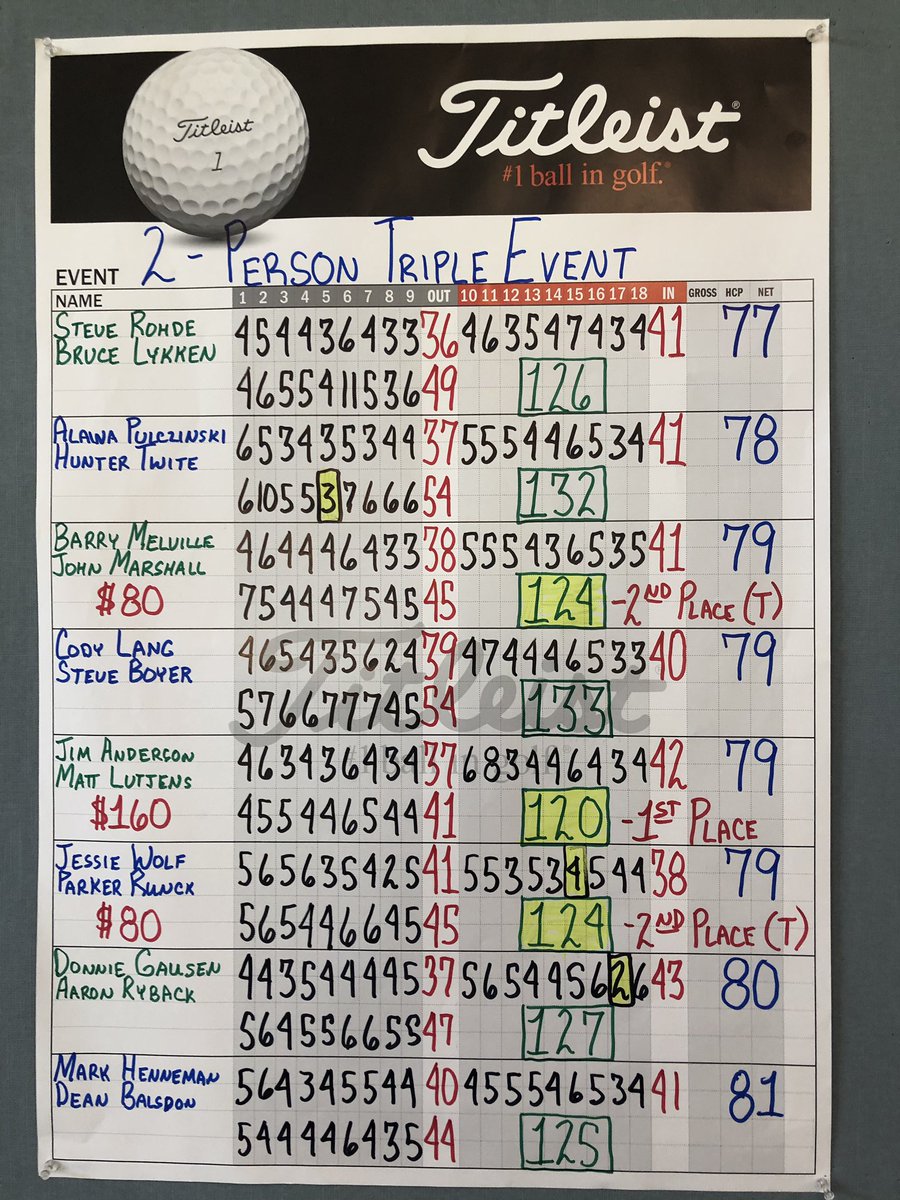 Titleist
1
Titleist®
#1 ball in golf.®
EVENT 2-PERSON TRIPLE EVENT
NAME 1 2 3 4 5 6 7 8 9 OUT 10 11 12 13 14 15 16 17 18 IN GROSS HCP NET
STEVE ROHDE
BRUCE LYKKEN
4 5 4 4 3 6 4 3 3 36 4 6 3 5 4 7 4 3 4 41 77
4 6 5 5 4 11 5 3 6 49 126
ALAINA PULCZINSKI
HUNTER TWITE
6 5 3 4 3 5 3 4 4 37 5 5 5 4 4 6 5 3 4 41 78
6 10 5 5 3 7 6 6 6 54 132
BARRY MELVILLE
JOHN MARSHALL
4 6 4 4 4 6 4 3 3 38 5 5 5 4 3 6 5 3 5 41 79
$80 7 5 4 4 4 7 5 4 5 45 124 -2ND PLACE (T)
CODY LANG
STEVE BOYER
4 6 5 4 3 5 6 2 4 39 4 7 4 4 4 6 5 3 3 40 79
5 7 6 6 7 7 7 4 5 54 133
Titleist
JIM ANDERSON
MATT LUTJENS
4 6 3 4 3 6 4 3 4 37 6 8 3 4 4 6 4 3 4 42 79
$160 4 5 5 4 4 6 5 4 4 41 120 -1ST PLACE
JESSIE WOLF
PARKER RUNCK
5 6 5 6 3 5 4 2 5 41 5 5 3 5 3 4 5 4 4 38 79
$80 5 6 5 4 4 6 6 4 5 45 124 -2ND PLACE (T)
DONNIE GAUSEN
AARON RYBACK
4 4 3 5 4 4 4 4 5 37 5 6 5 4 4 5 6 2 6 43 80
5 6 4 5 5 6 6 5 5 47 127
MARK HENNEMAN
DEAN BALSDON
5 6 4 3 4 5 5 4 4 40 4 5 5 5 4 6 5 3 4 41 81
5 4 4 4 4 6 4 3 5 44 125